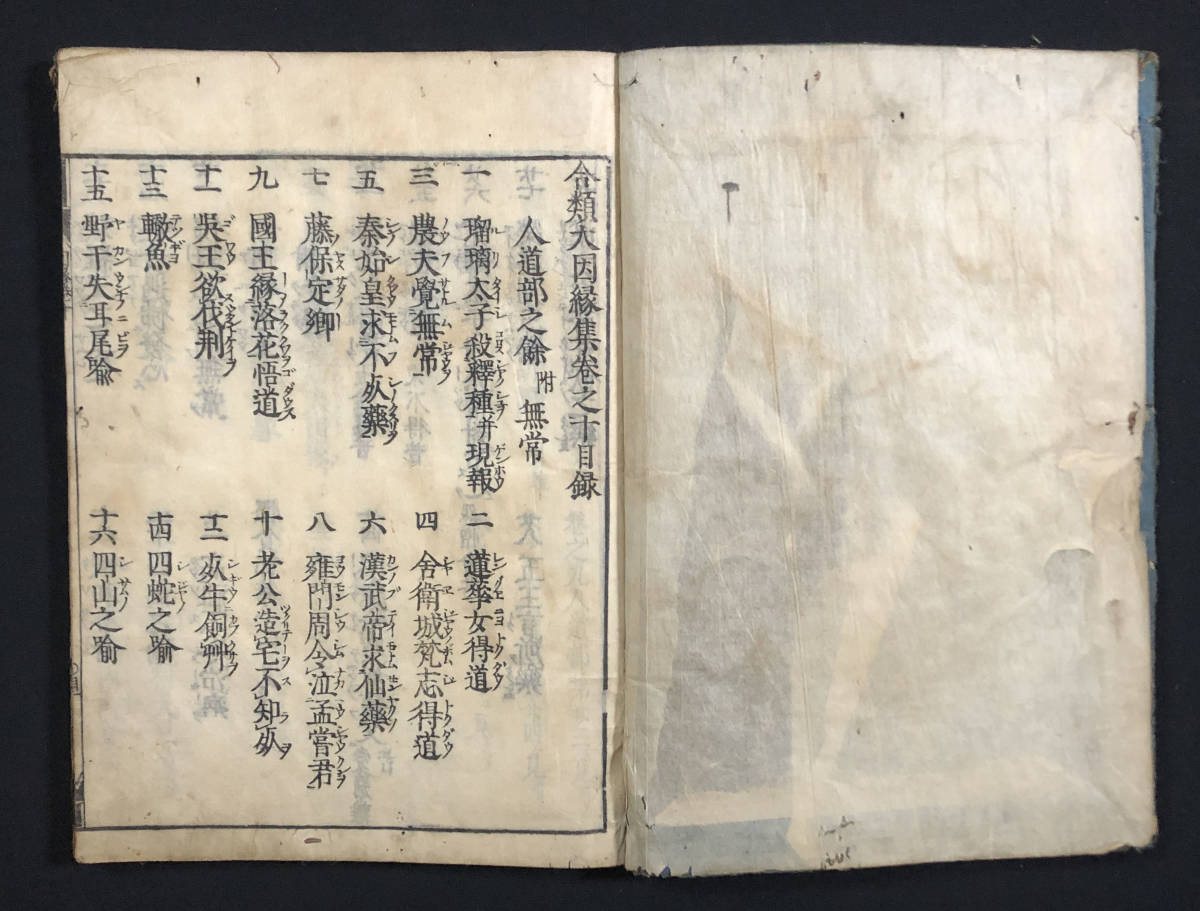 合類大因縁集卷之十目録
人道部之餘 附 無常
一 瑠璃太子殺釋種并現報 二 蓮華女得道
三 農夫覺無常 四 舍衛城梵志得道
五 秦始皇求不死藥 六 漢武帝求仙藥
七 藤保定卿 八 雍門周今泣孟嘗君
九 國王縁落花悟道 十 老公造宅不知死
十一 吳王欲伐荆 十二 死牛飼艸
十三 轍魚 十四 四蛇之喻
十五 野干失耳尾喻 十六 四山之喻